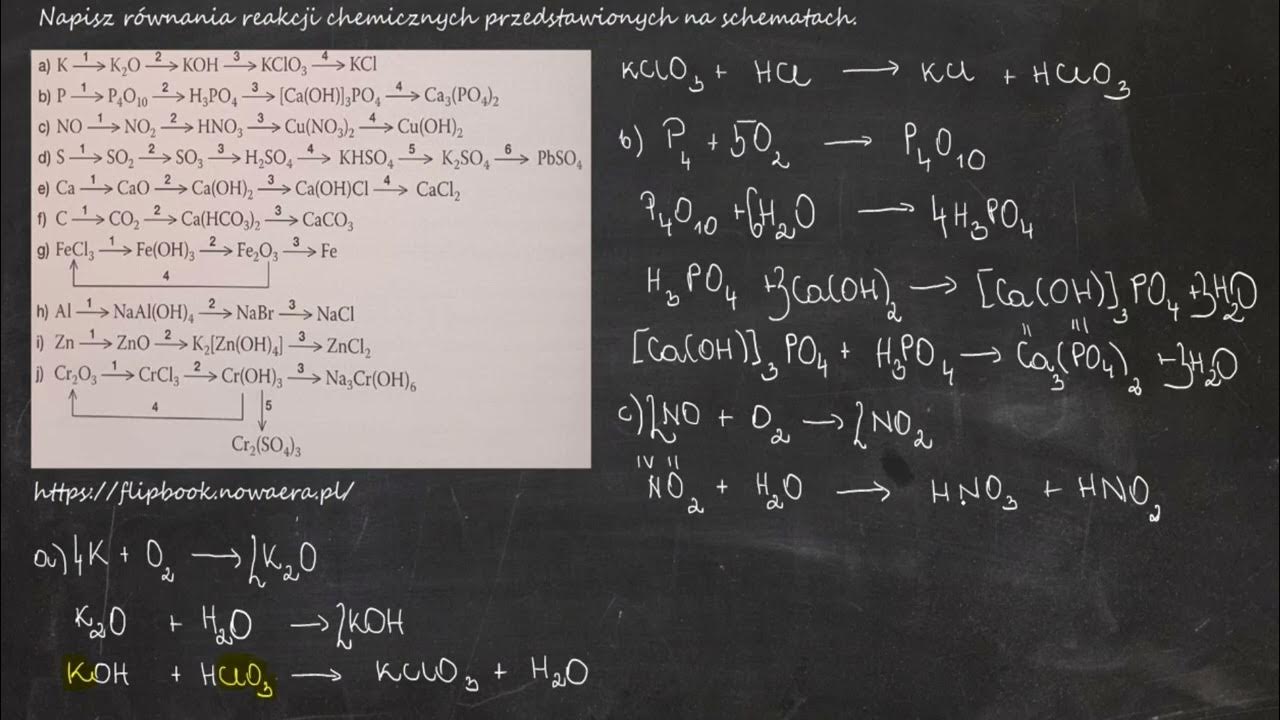 Napisz równania reakcji chemicznych przedstawionych na schematach.
a) K —1→ K₂O —2→ KOH —3→ KClO₃ —4→ KCl
b) P —1→ P₄O₁₀ —2→ H₃PO₄ —3→ [Ca(OH)]₃PO₄ —4→ Ca₃(PO₄)₂
c) NO —1→ NO₂ —2→ HNO₃ —3→ Cu(NO₃)₂ —4→ Cu(OH)₂
d) S —1→ SO₂ —2→ SO₃ —3→ H₂SO₄ —4→ KHSO₄ —5→ K₂SO₄ —6→ PbSO₄
e) Ca —1→ CaO —2→ Ca(OH)₂ —3→ Ca(OH)Cl —4→ CaCl₂
f) C —1→ CO₂ —2→ Ca(HCO₃)₂ —3→ CaCO₃
g) FeCl₃ —1→ Fe(OH)₃ —2→ Fe₂O₃ —3→ Fe
4
h) Al —1→ NaAl(OH)₄ —2→ NaBr —3→ NaCl
i) Zn —1→ ZnO —2→ K₂[Zn(OH)₄] —3→ ZnCl₂
j) Cr₂O₃ —1→ CrCl₃ —2→ Cr(OH)₃ —3→ Na₃Cr(OH)₆
4 5
Cr₂(SO₄)₃
https://flipbook.nowaera.pl/
a) 4K + O₂ → 2K₂O
K₂O + H₂O → 2KOH
KOH + HClO₃ → KClO₃ + H₂O
KClO₃ + HCl → KCl + HClO₃
b) P₄ + 5O₂ → P₄O₁₀
P₄O₁₀ + 6H₂O → 4H₃PO₄
H₃PO₄ + 3Ca(OH)₂ → [Ca(OH)]₃PO₄ + 3H₂O
II III
[Ca(OH)]₃PO₄ + H₃PO₄ → Ca₃(PO₄)₂ + 3H₂O
c) 2NO + O₂ → 2NO₂
IV II
NO₂ + H₂O → HNO₃ + HNO₂